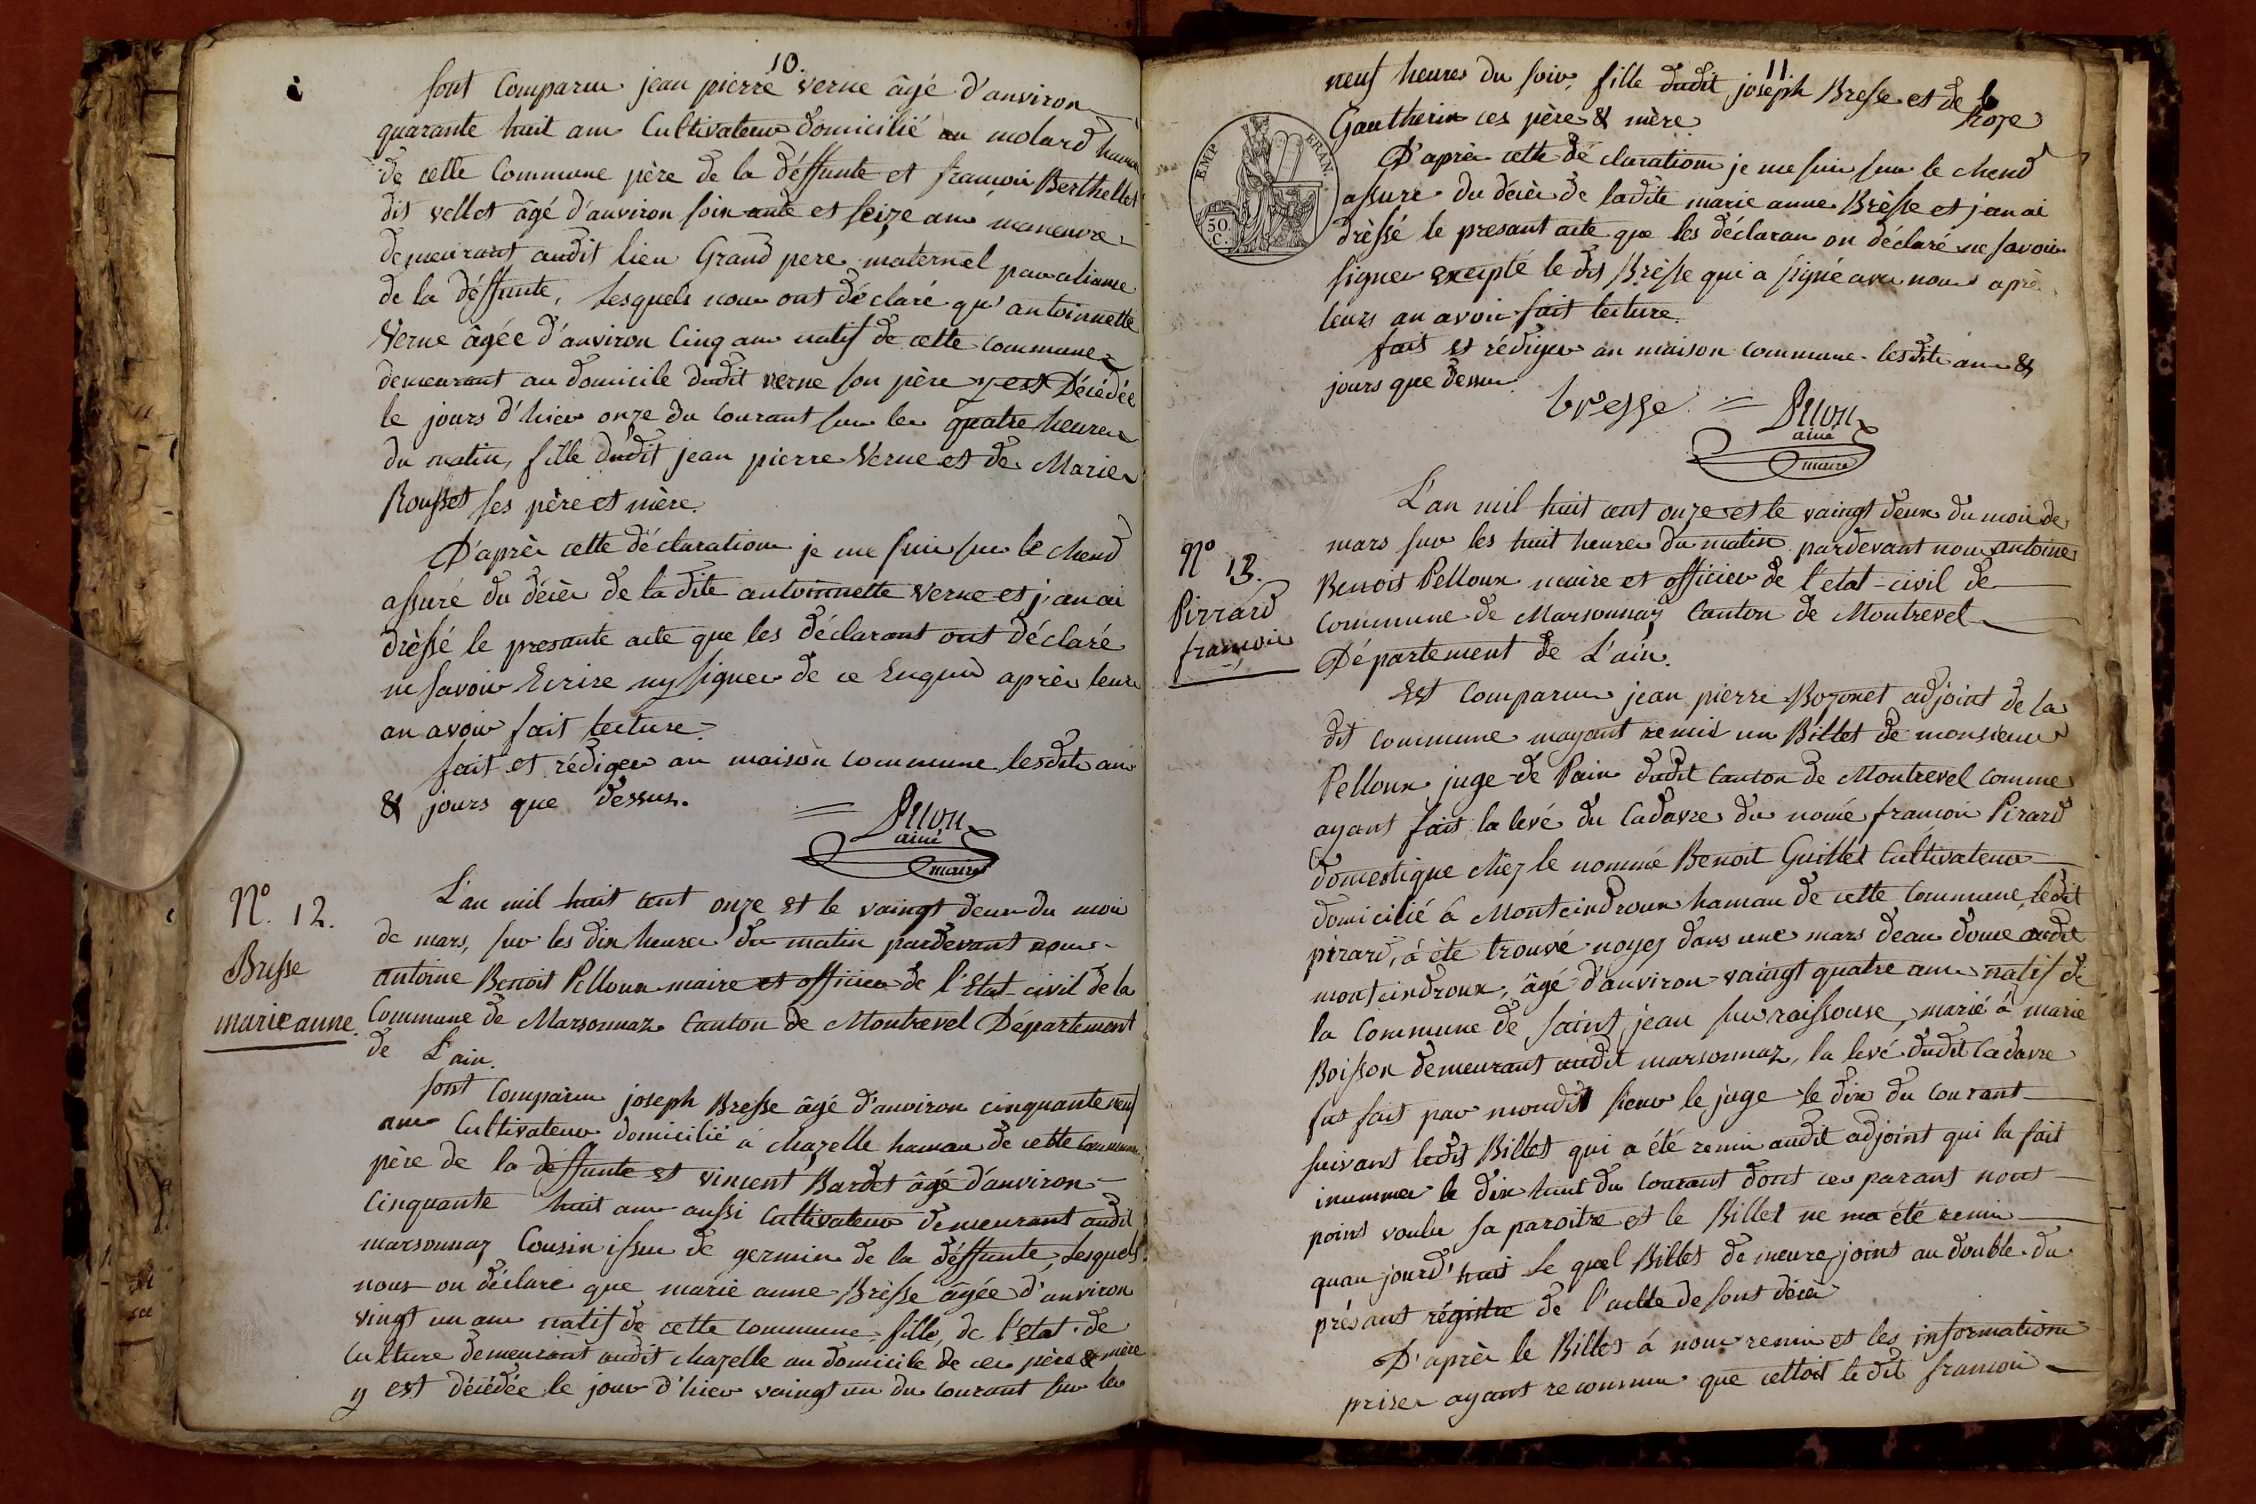 10.
sont Comparus jean pierre Verne âgé d'anviron
quarante huit ans Cultivateur domicilié au molard hameau
de cette Commune père de la déffunte et françois Berthellet
dit vellet âgé d'anviron soixante et seize ans manouvre
demeurant audit lieu Grand pere maternel par aliance
de la déffunte, Lesquels nous ont déclaré qu'antoinnette
Verne âgée d'anviron Cinq ans natif de cette commune
demeurant au domicile dudit verne son père y est Décédée
le jours d'hier onze du Courant sur les quatre heures
du matin, fille dudit jean pierre Verne et de Marie
Rousset ses père et mère.
D'après cette déclaration je me suis sur le chend
assuré du décès de la dite antoinnette Verne et j'an ai
dréssé le presante acte que les déclarant ont déclaré
ne savoir Ecrire ny signer de ce Enquis après leurs
an avoir fait lecture.
fait et rédiger an maison commune lesdits ans
& jours que dessus.
Pllon
ainé
maire
N.º 12.
Bresse
marie anne.
L'an mil huit cent onze et le vaingt deux du mois
de mars, sur les dix heures du matin pardevant nous
antoine Benoit Pelloux maire et officier de l'Etat civil de la
Commune de Marsonnaz Canton de Montrevel Département
de L'ain.
sont Comparus joseph Bresse âgé d'anviron cinquante neuf
ans Cultivateur domicilié à chazelle hamau de cette Commune
père de la déffunte et vincent Bardet âgé d'anviron
Cinquante huit ans aussi Cultivateur demeurant audit
marsonnaz Cousin issu de germin de la déffunte, Lesquels
nous on déclaré que marie anne Brésse âgée d'anviron
vingt un ans natif de cette commune fille, de l'etat de
Culture demeurant audit chazelle au domicile de ces père & mère
y est décédée le jour d'hier vaingt un du courant sur les
11.
neuf heures du soir, fille dudit joseph Bresse et de
Roze
Gautherin ces père & mère
EMP. FRAN.
50 C.
D'après cette déclaration je me suis sur le chend
assuré du décès de ladite marie anne Brésse et j'an ai
dréssé le presant acte que les déclaran on déclaré ne savoir
signer excepté le dit Brésse qui a signé avec nous après
leurs an avoir fait lecture.
fait et rédiger an maison commune lesdits ans &
jours que dessus.
bresse
Pllon
ainé
maire
Nº 13.
Pirrard
françois
L'an mil huit cent onze et le vaingt deux du mois de
mars sur les huit heures du matin pardevant nous antoine
Benoit Pelloux maire et officier de l'etat-civil de
commune de Marsonnaz Canton de Montrevel
Département de L'ain.
Est Comparus jean pierre Bozonet adjoint de la
dit commune mayant remis un Billet de monsieur
Pelloux juge de Paix dudit Canton de Montrevel comme
ayant fait la levé du Cadavre du nomé françois Pirard
domestique chez le nommé Benoit Guillet Cultivateur
domicilié à Monteindroux hamau de cette Commune, ledit
pirard, à été trouvé noyez dans une mars deau douce audit
monteindroux, âgé d'anviron vaingt quatre ans natif de
la Commune de saint jean sur raissouse, marié à marie
Boisson demeurant audit marsonnaz, la levé dudit Cadavre
fut fait par mondit sieur le juge le dix du courant
suivant ledit Billet qui a été remis audit adjoint qui la fait
inummer le dix huit du Courant dont ces parant nont
point voulu sa paroitre et le Billet ne ma été remis
quau jourd'huit Le quel Billet demeure joint au double du
présant régistre de l'acte de sont décès
D'après le Billet à nous remis et les information
prises ayant reconnu que cettoit le dit françois